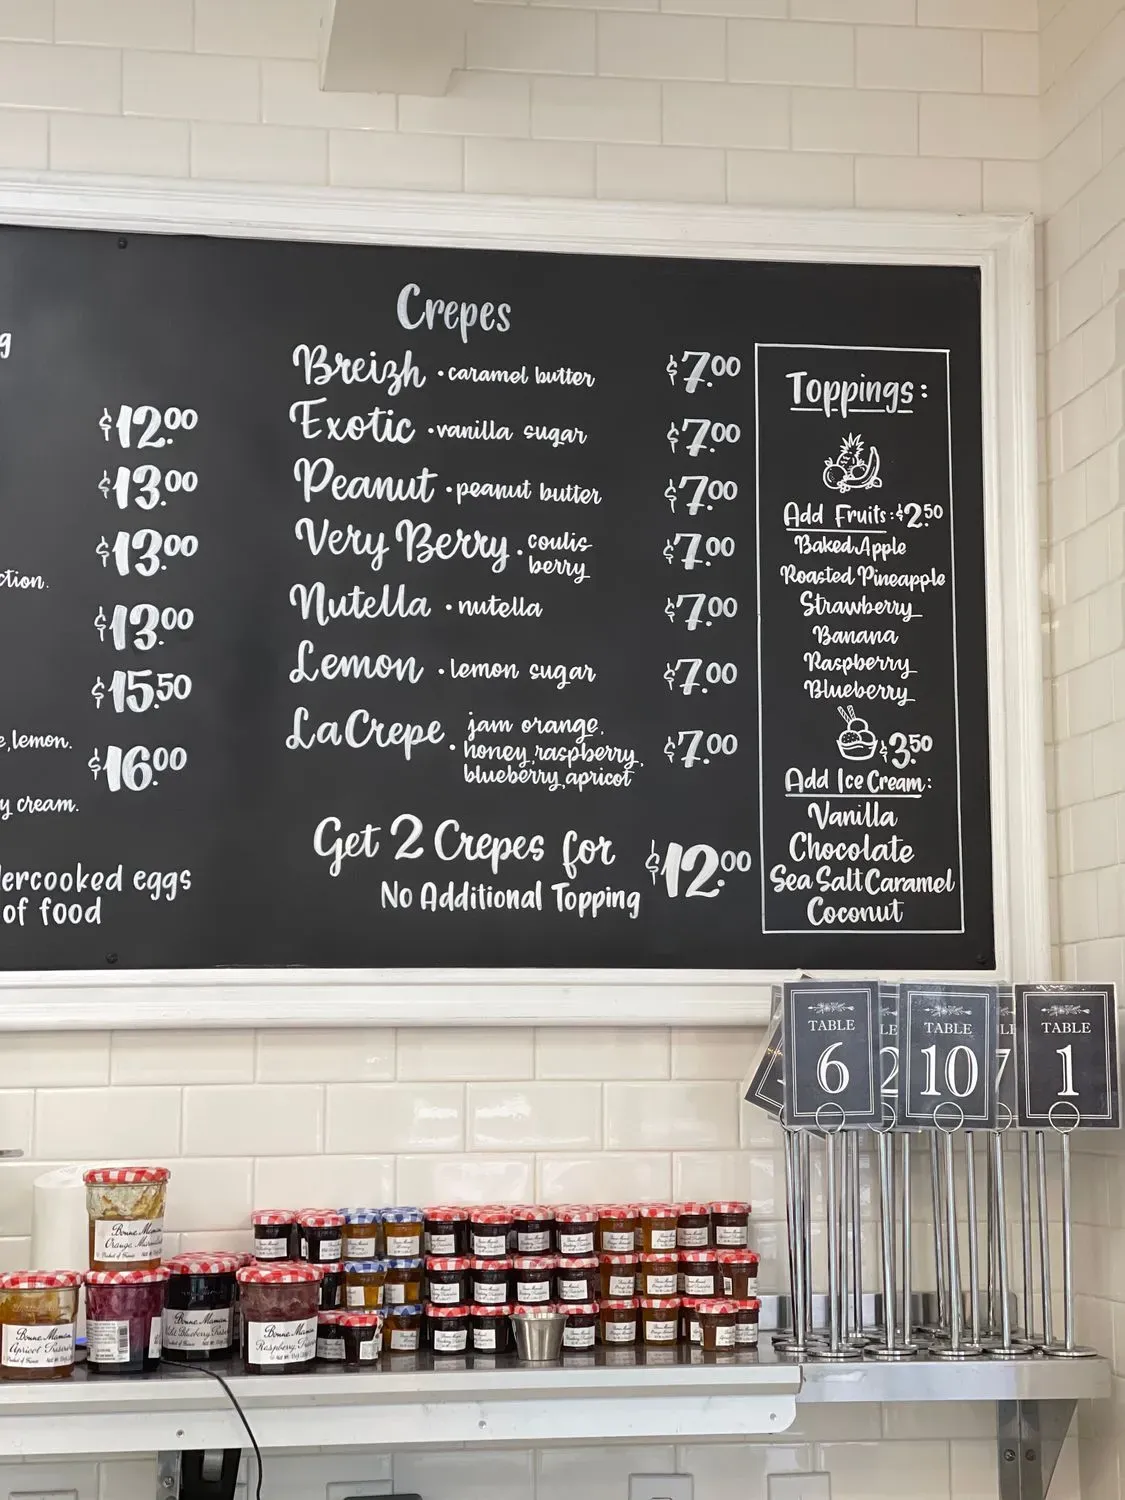 g
$12.00
$13.00
$13.00
ction.
$13.00
$15.50
e, lemon.
$16.00
y cream.
ercooked eggs
of food
Crepes
Breizh • caramel butter $7.00
Exotic • vanilla sugar $7.00
Peanut • peanut butter $7.00
Very Berry • coulis $7.00
berry
Nutella • nutella $7.00
Lemon • lemon sugar $7.00
La Crepe • jam orange, $7.00
honey, raspberry,
blueberry, apricot
Get 2 Crepes for $12.00
No Additional Topping
Toppings:
Add Fruits: $2.50
Baked Apple
Roasted Pineapple
Strawberry
Banana
Raspberry
Blueberry
$3.50
Add Ice Cream:
Vanilla
Chocolate
Sea Salt Caramel
Coconut
TABLE
6
LE
2
TABLE
10
LE
7
TABLE
1
Bonne Maman
Orange Marmalade
Product of France
Bonne Maman
Apricot Preserves
Bonne Maman
Wild Blueberry Preserves
Bonne Maman
Raspberry Preserves